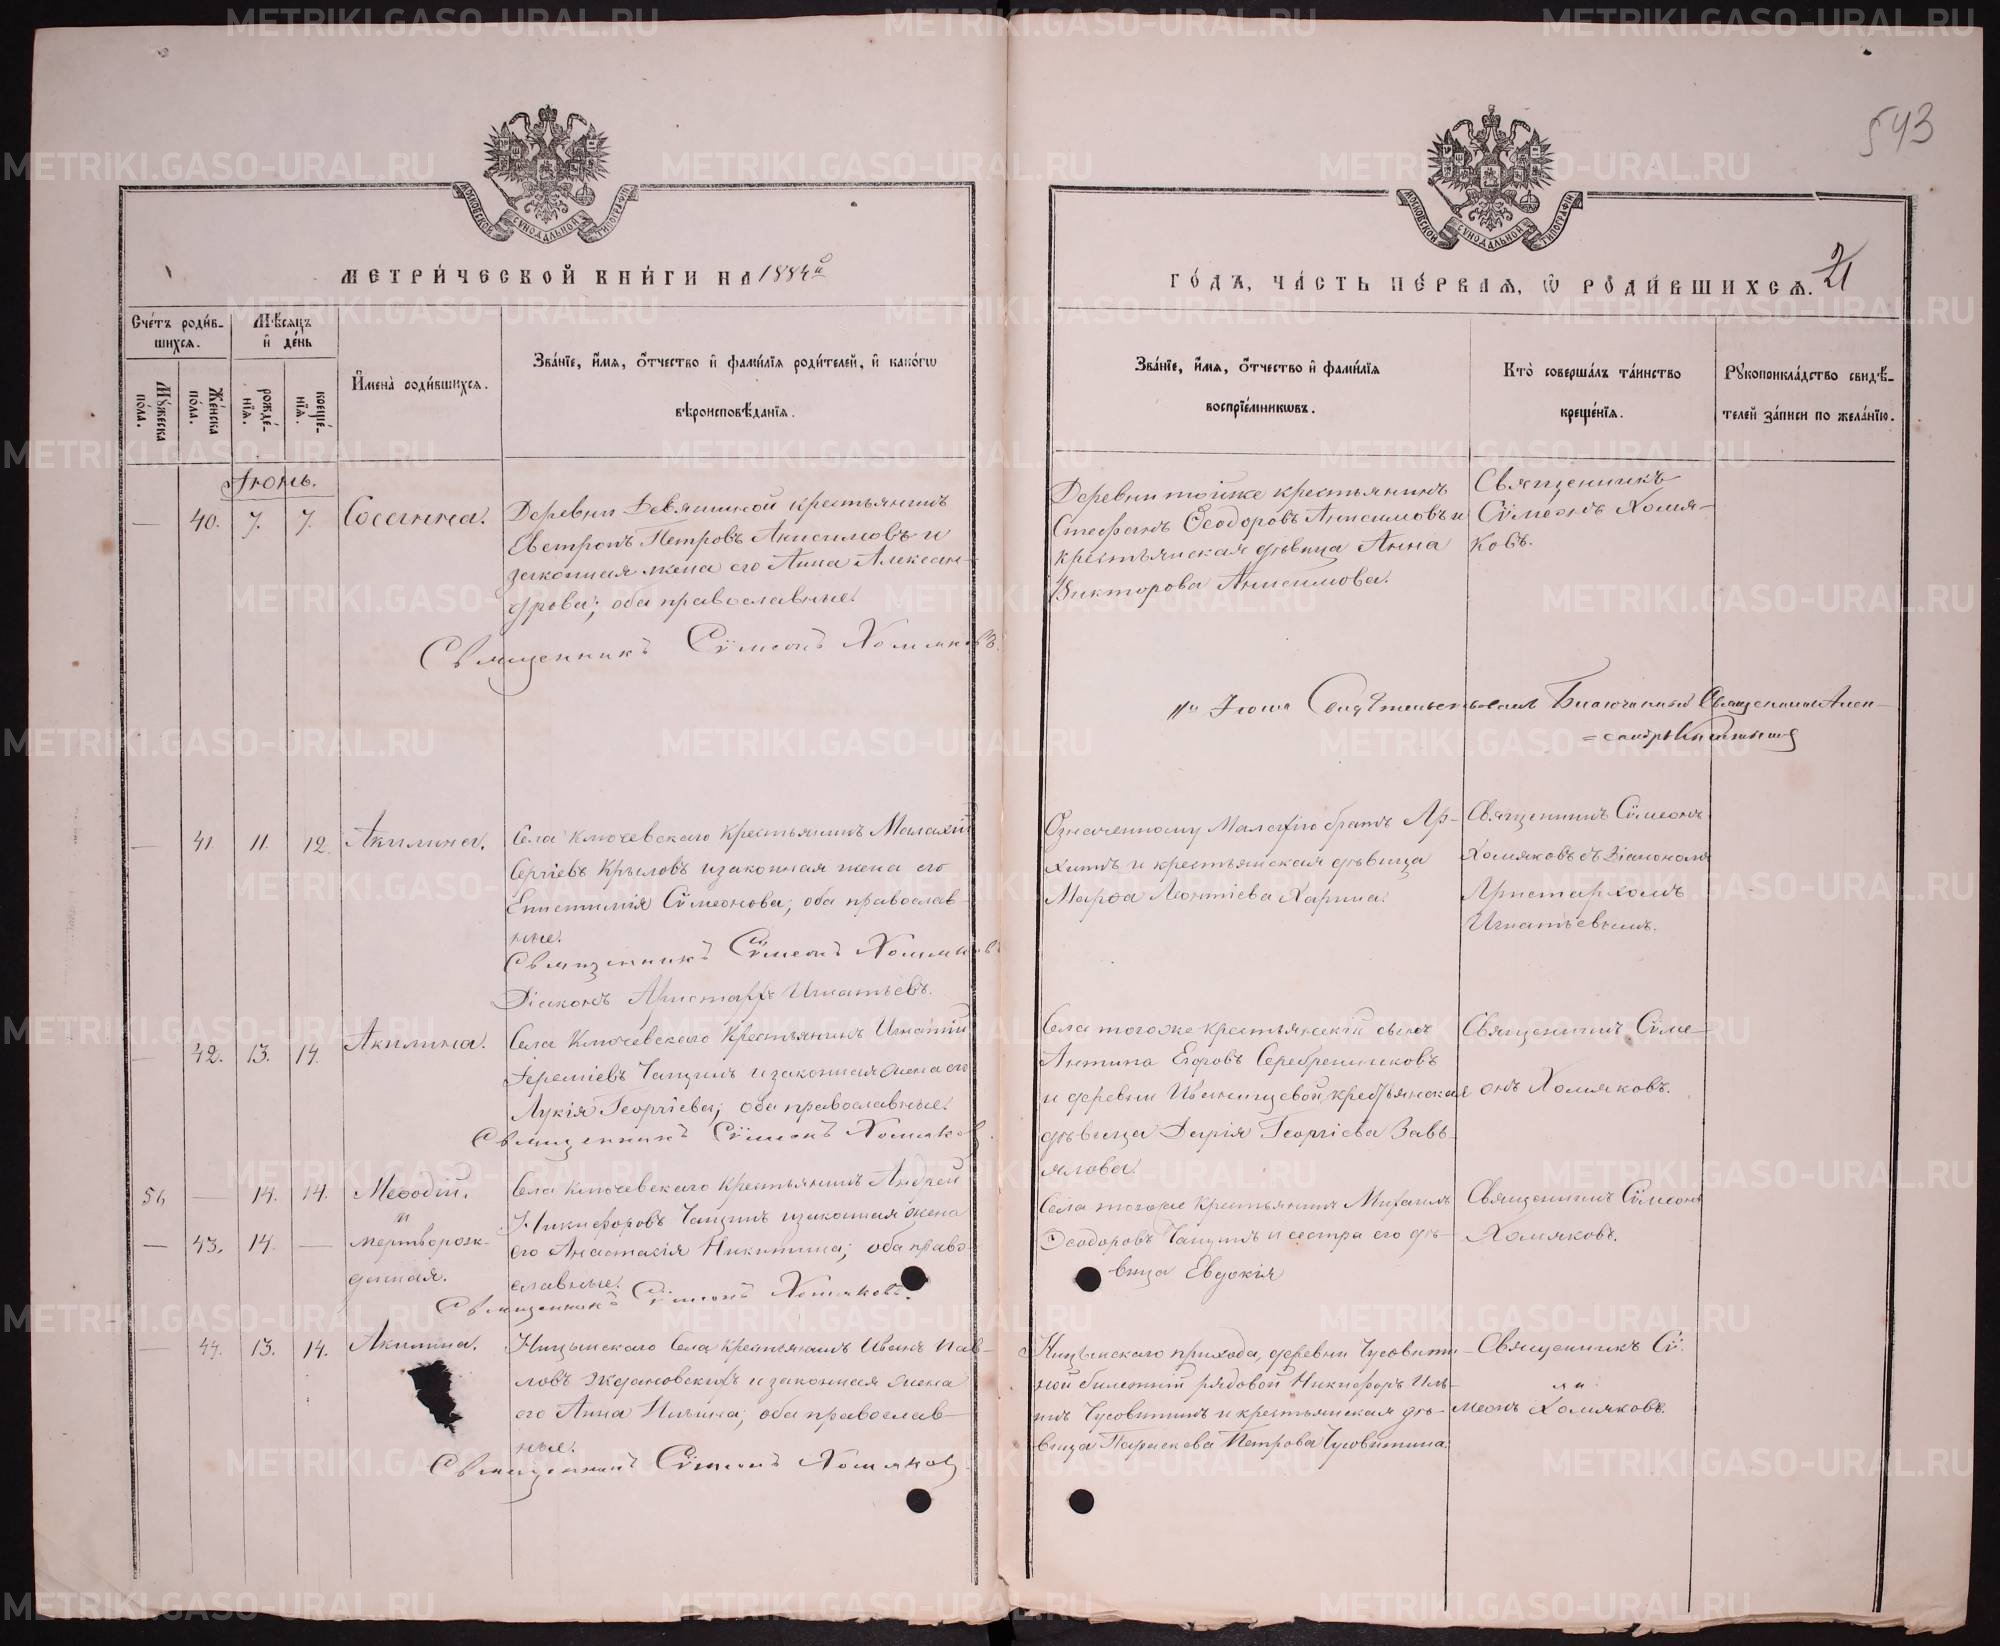 543
МОСКОВСКОЙ СѴНОДАЛЬНОЙ ТИПОГРАФІИ
МОСКОВСКОЙ СѴНОДАЛЬНОЙ ТИПОГРАФІИ
МЕТРИ́ЧЕСКОЙ КНИ́ГИ НА 1884й
ГО́ДЪ, ЧА́СТЬ ПЕ́РВАЯ, Ѡ РОДИ́ВШИХСЯ. 21
Сче́тъ роди́в-
шихся.
Мѣсяцъ
и҆ де́нь
Му́жеска
по́ла.
Же́нска
по́ла.
рожде́-
нїя.
креще́-
нїя.
И҆мена̀ роди́вшихся.
Зва́нїе, и҆́мя, ѻ҆́тчество и҆ фами́лїя роди́телей, и҆ како́гѡ
вѣроисповѣ́данїя.
Зва́нїе, и҆́мя, ѻ҆́тчество и҆ фами́лїя
воспрїе́мникѡвъ.
Кто̀ соверша́лъ та́инство
креще́нїя.
Рукоприкла́дство свидѣ́-
телей за́писи по жела́нїю.
Іюнь.
— 40. 7. 7. Сосанна.
Деревни Девяшиной крестьянинъ
Евстропъ Петровъ Анисимовъ и
законная жена его Анна Алексан-
дрова; оба православные.
Священникъ Сѵмеонъ Хомяковъ.
Деревни тойже крестьянинъ
Стефанъ Ѳеодоровъ Анисимовъ и
крестьянская дѣвица Анна
Викторова Анисимова.
Священникъ
Сѵмеонъ Хомя-
ковъ.
Іюня Свидѣтельствовалъ Благочинный Священникъ Алек-
— 41. 11. 12. Акилина.
Села Ключевскаго крестьянинъ Малахій
Сергіевъ Крыловъ и законная жена его
Епистимія Сѵмеонова; оба православ
ные.
Священникъ Сѵмеонъ Хомяковъ
Діаконъ Аристархъ Игнатьевъ.
Означенному Малафію братъ Ар-
хипъ и крестьянская дѣвица
Марѳа Леонтіева Харина.
Священникъ Сѵмеонъ
Хомяковъ съ Діакономъ
Аристархомъ
Игнатьевымъ.
— 42. 13. 14. Акилина.
Села Ключевскаго крестьянинъ Игнатій
Іереміевъ Чащинъ и законная жена его
Лукія Георгіева; оба православные.
Священникъ Сѵмеонъ Хомяковъ.
Села тогоже крестьянскій сынъ
Антипа Егоровъ Серебренниковъ
и деревни Иванищевой крестьянская
дѣвица Дарія Георгіева Завь-
ялова.
Священникъ Сѵме-
онъ Хомяковъ.
51 — 14. 14. Меѳодій.
и
— 43. 14. — мертворож-
денная.
Села Ключевскаго крестьянинъ Андрей
Никифоровъ Чащинъ и законная жена
его Анастасія Никитина; оба право-
славные.
Священникъ Сѵмеонъ Хомяковъ.
Села тогоже крестьянинъ Михаилъ
Ѳеодоровъ Чащинъ и сестра его дѣ-
вица Евдокія
Священникъ Сѵмеонъ
Хомяковъ.
— 44. 13. 14. Акилина.
Ницынскаго Села крестьянинъ Иванъ Пав-
ловъ Ждановскихъ и законная жена
его Анна Ильина; оба православ-
ные.
Священникъ Сѵмеонъ Хомяковъ.
Ницынскаго прихода, деревни Чусовити-
ной билетный рядовой Никифоръ Иль-
инъ Чусовитинъ и крестьянская дѣ-
вица Параскева Петрова Чусовитина.
Священникъ Сѵ-
меонъ Хомяковъ.